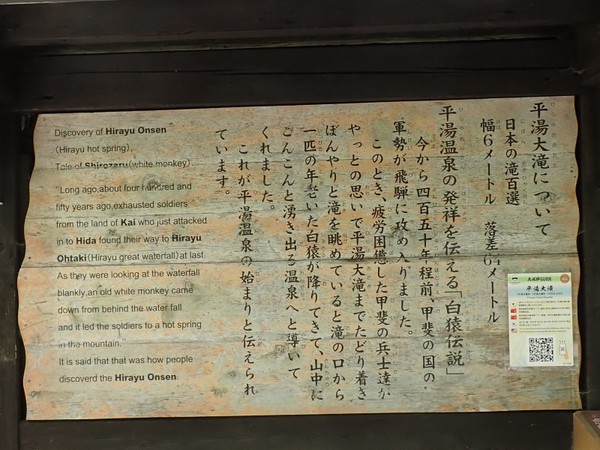 平湯大滝について
日本の滝百選
幅6メートル 落差64メートル
平湯温泉の発祥を伝える「白猿伝説」
今から四百五十年程前、甲斐の国の
軍勢が飛騨に攻め入りました。
このとき、疲労困憊した甲斐の兵士達が
やっとの思いで平湯大滝までたどり着き
ぼんやりと滝を眺めていると滝の口から
一匹の年老いた白猿が降りてきて、山中に
こんこんと湧き出る温泉へと導いて
くれました。
これが平湯温泉の始まりと伝えられ
ています。
Discovery of Hirayu Onsen
(Hirayu hot spring),
Tale of Shirozaru(white monkey)
"Long ago,about four hundred and
fifty years ago,exhausted soldiers
from the land of Kai who just attacked
in to Hida found their way to Hirayu
Ohtaki(Hirayu great waterfall)at last
As they were looking at the waterfall
blankly,an old white monkey came
down from behind the water fall
and it led the soldiers to a hot spring
in the mountain.
It is said that that was how people
discoverd the Hirayu Onsen
平湯大滝